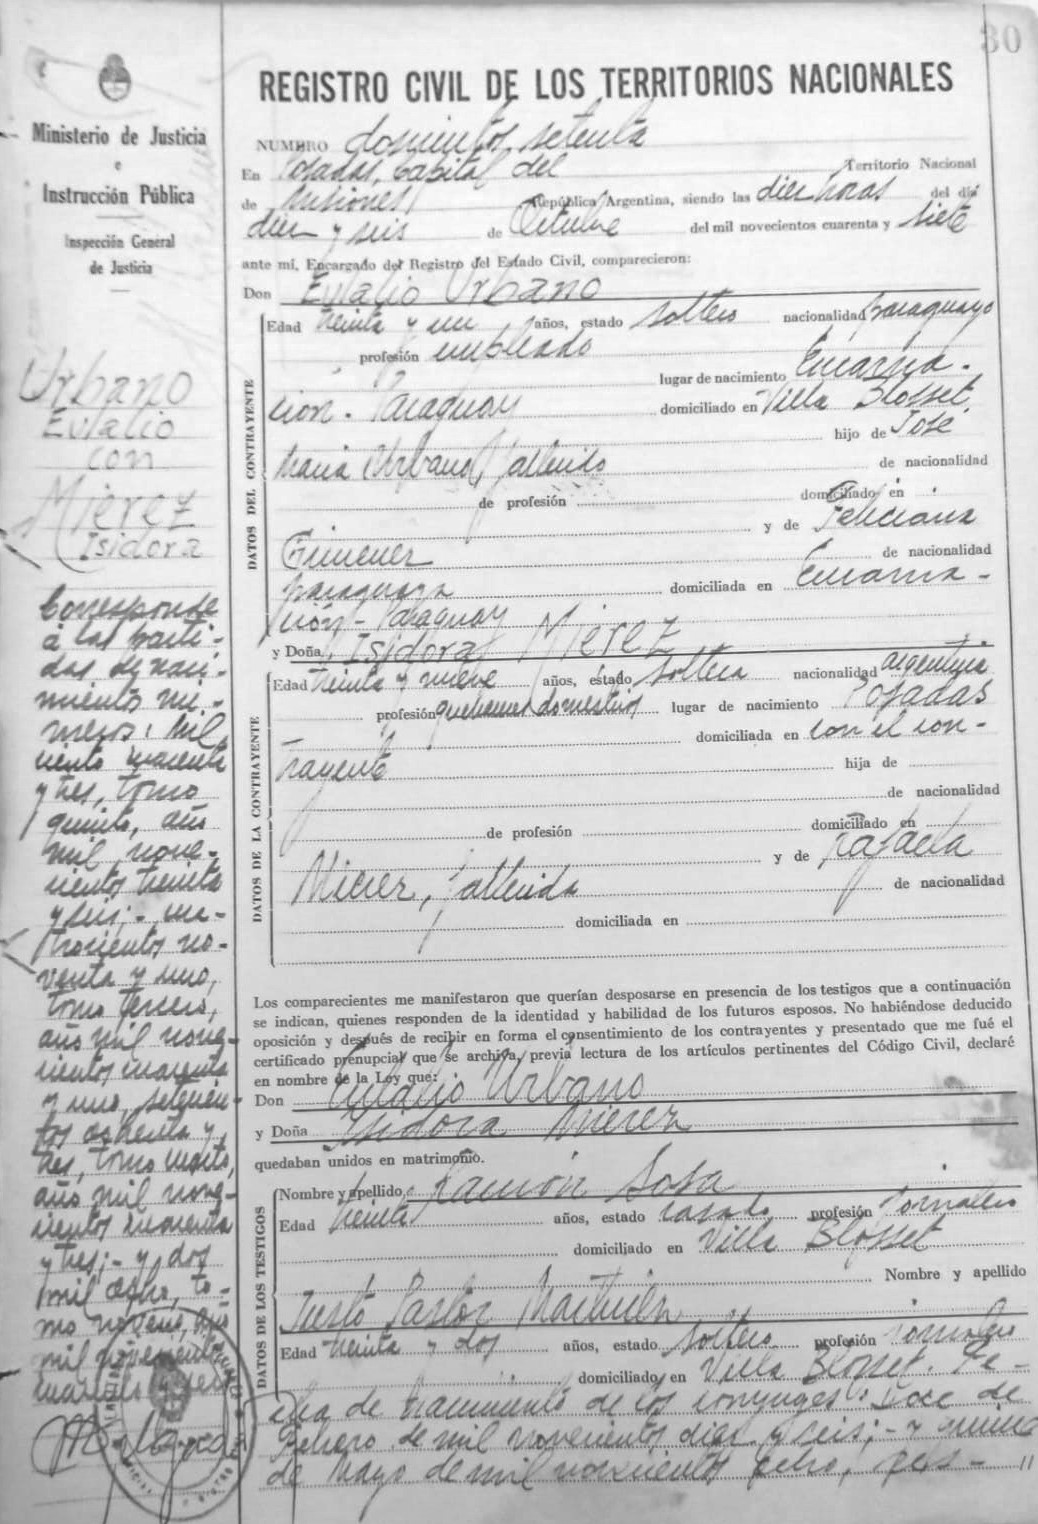 30
Ministerio de Justicia
e
Instrucción Pública
Inspección General
de Justicia
Urbano
Eulalio
con
Mierez
Isidora
Corresponde
á las parti-
das de naci-
mientos nú-
meros: mil
ciento cuarenta
y tres, tomo
quinto, año
mil nove-
cientos treinta
y seis; - cua-
trocientos no-
venta y uno,
tomo tercero,
año mil nove-
cientos cuarenta
y uno, seiscien-
tos ochenta y
tres, tomo cuarto,
año mil nove-
cientos cuarenta
y tres; - y dos
mil ocho, to-
mo noveno, año
mil novecientos
cuarenta y seis
REGISTRO CIVIL DE LOS TERRITORIOS NACIONALES
NUMERO doscientos setenta
En Posadas, Capital del Territorio Nacional
de Misiones República Argentina, siendo las diez horas del día
diez y seis de Octubre del mil novecientos cuarenta y siete
ante mí, Encargado del Registro del Estado Civil, comparecieron:
Don Eulalio Urbano
DATOS DEL CONTRAYENTE
Edad treinta y un años, estado soltero nacionalidad paraguayo
profesión empleado lugar de nacimiento Encarna-
ción - Paraguay domiciliado en Villa Blosset
hijo de José
María Urbano, fallecido de nacionalidad
de profesión domiciliado en
y de Feliciana
Gimenez de nacionalidad
paraguaya domiciliada en Encarna-
ción - Paraguay
y Doña Isidora Mierez
DATOS DE LA CONTRAYENTE
Edad treinta y nueve años, estado soltera nacionalidad argentina
profesión quehaceres domésticos lugar de nacimiento Posadas
domiciliada en con el con-
trayente hija de
de nacionalidad
de profesión domiciliado en
y de Rafaela
Mierez, fallecida de nacionalidad
domiciliada en
Los comparecientes me manifestaron que querían desposarse en presencia de los testigos que a continuación
se indican, quienes responden de la identidad y habilidad de los futuros esposos. No habiéndose deducido
oposición y después de recibir en forma el consentimiento de los contrayentes y presentado que me fué el
certificado prenupcial que se archiva, previa lectura de los artículos pertinentes del Código Civil, declaré
en nombre de la Ley que:
Don Eulalio Urbano
y Doña Isidora Mierez
quedaban unidos en matrimonio.
DATOS DE LOS TESTIGOS
Nombre y apellido Ramón Sosa
Edad treinta años, estado casado profesión jornalero
domiciliado en Villa Blosset
Nombre y apellido
Justo Pastor
Edad treinta y dos años, estado soltero profesión jornalero
domiciliado en Villa Blosset. Fe-
cha de nacimiento de los conyuges: Doce de
Febrero de mil novecientos diez y seis; - y quince
de Mayo de mil novecientos ocho,